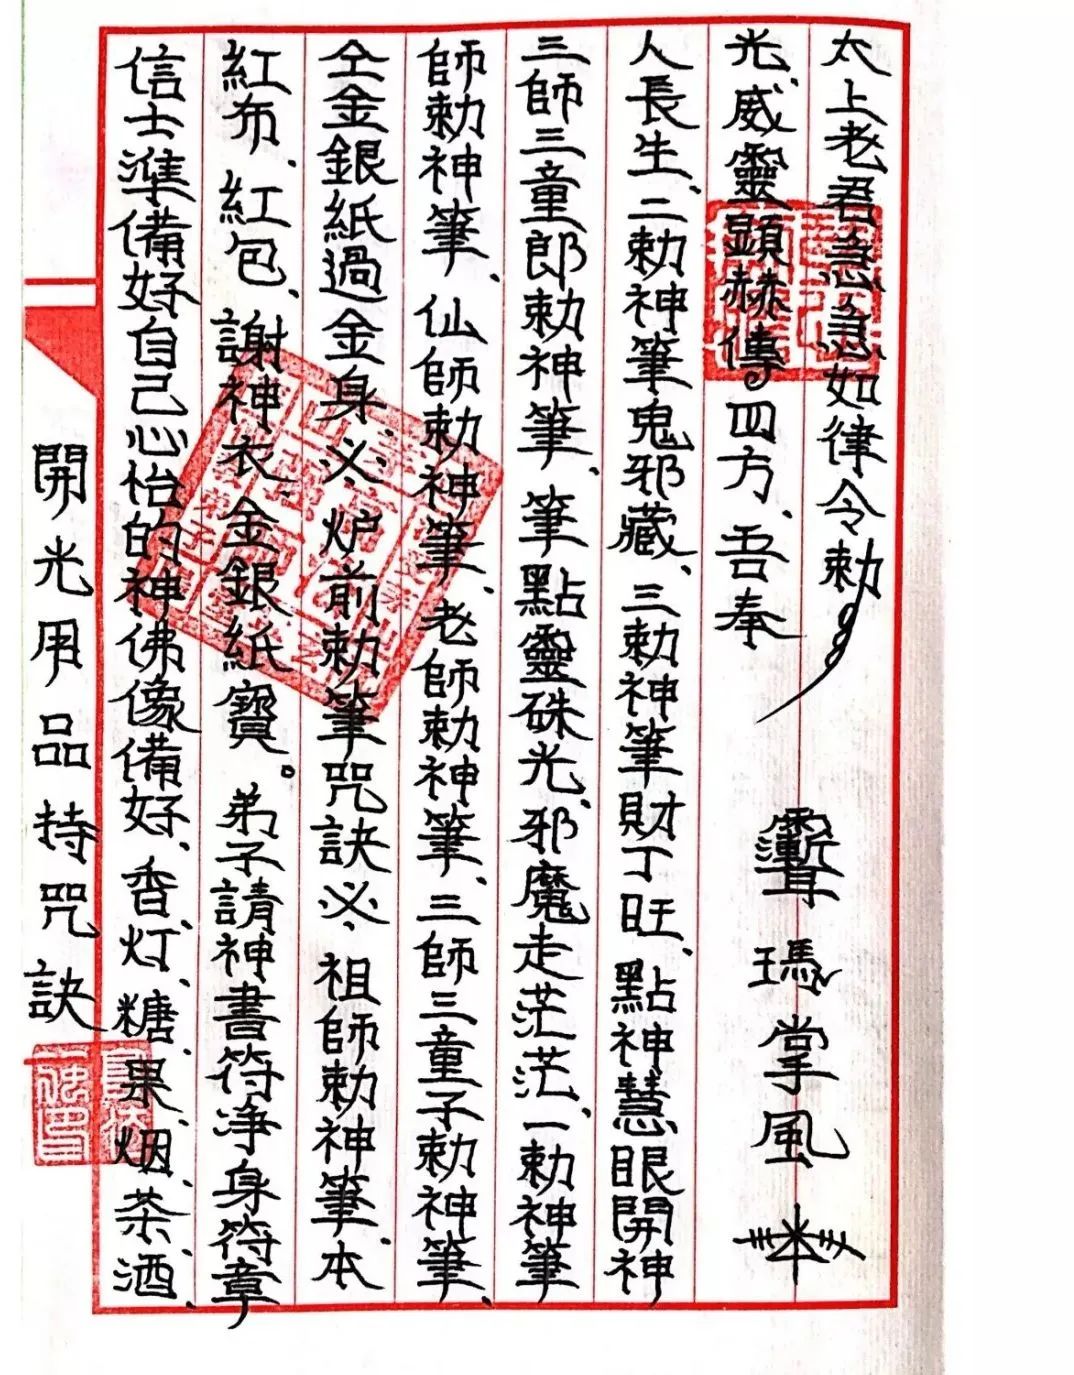 開光用品持咒訣
信士準備好自己心怡的神佛像備好、香灯、糖果、烟茶酒、
紅布、紅包、謝神衣、金銀紙寶。弟子請神書符净身符章
仝金銀紙過金身、必、炉前勅筆咒訣必、祖師勅神筆、本
師勅神筆、仙師勅神筆、老師勅神筆、三師三童子勅神筆、
三師三童郎勅神筆、筆點靈硃光、邪魔走茫茫、一勅神筆
人長生、二勅神筆鬼邪藏、三勅神筆財丁旺、點神慧眼開神
光、威靈顕赫傳四方、吾奉
太上老君急急如律令勅
瑪掌風